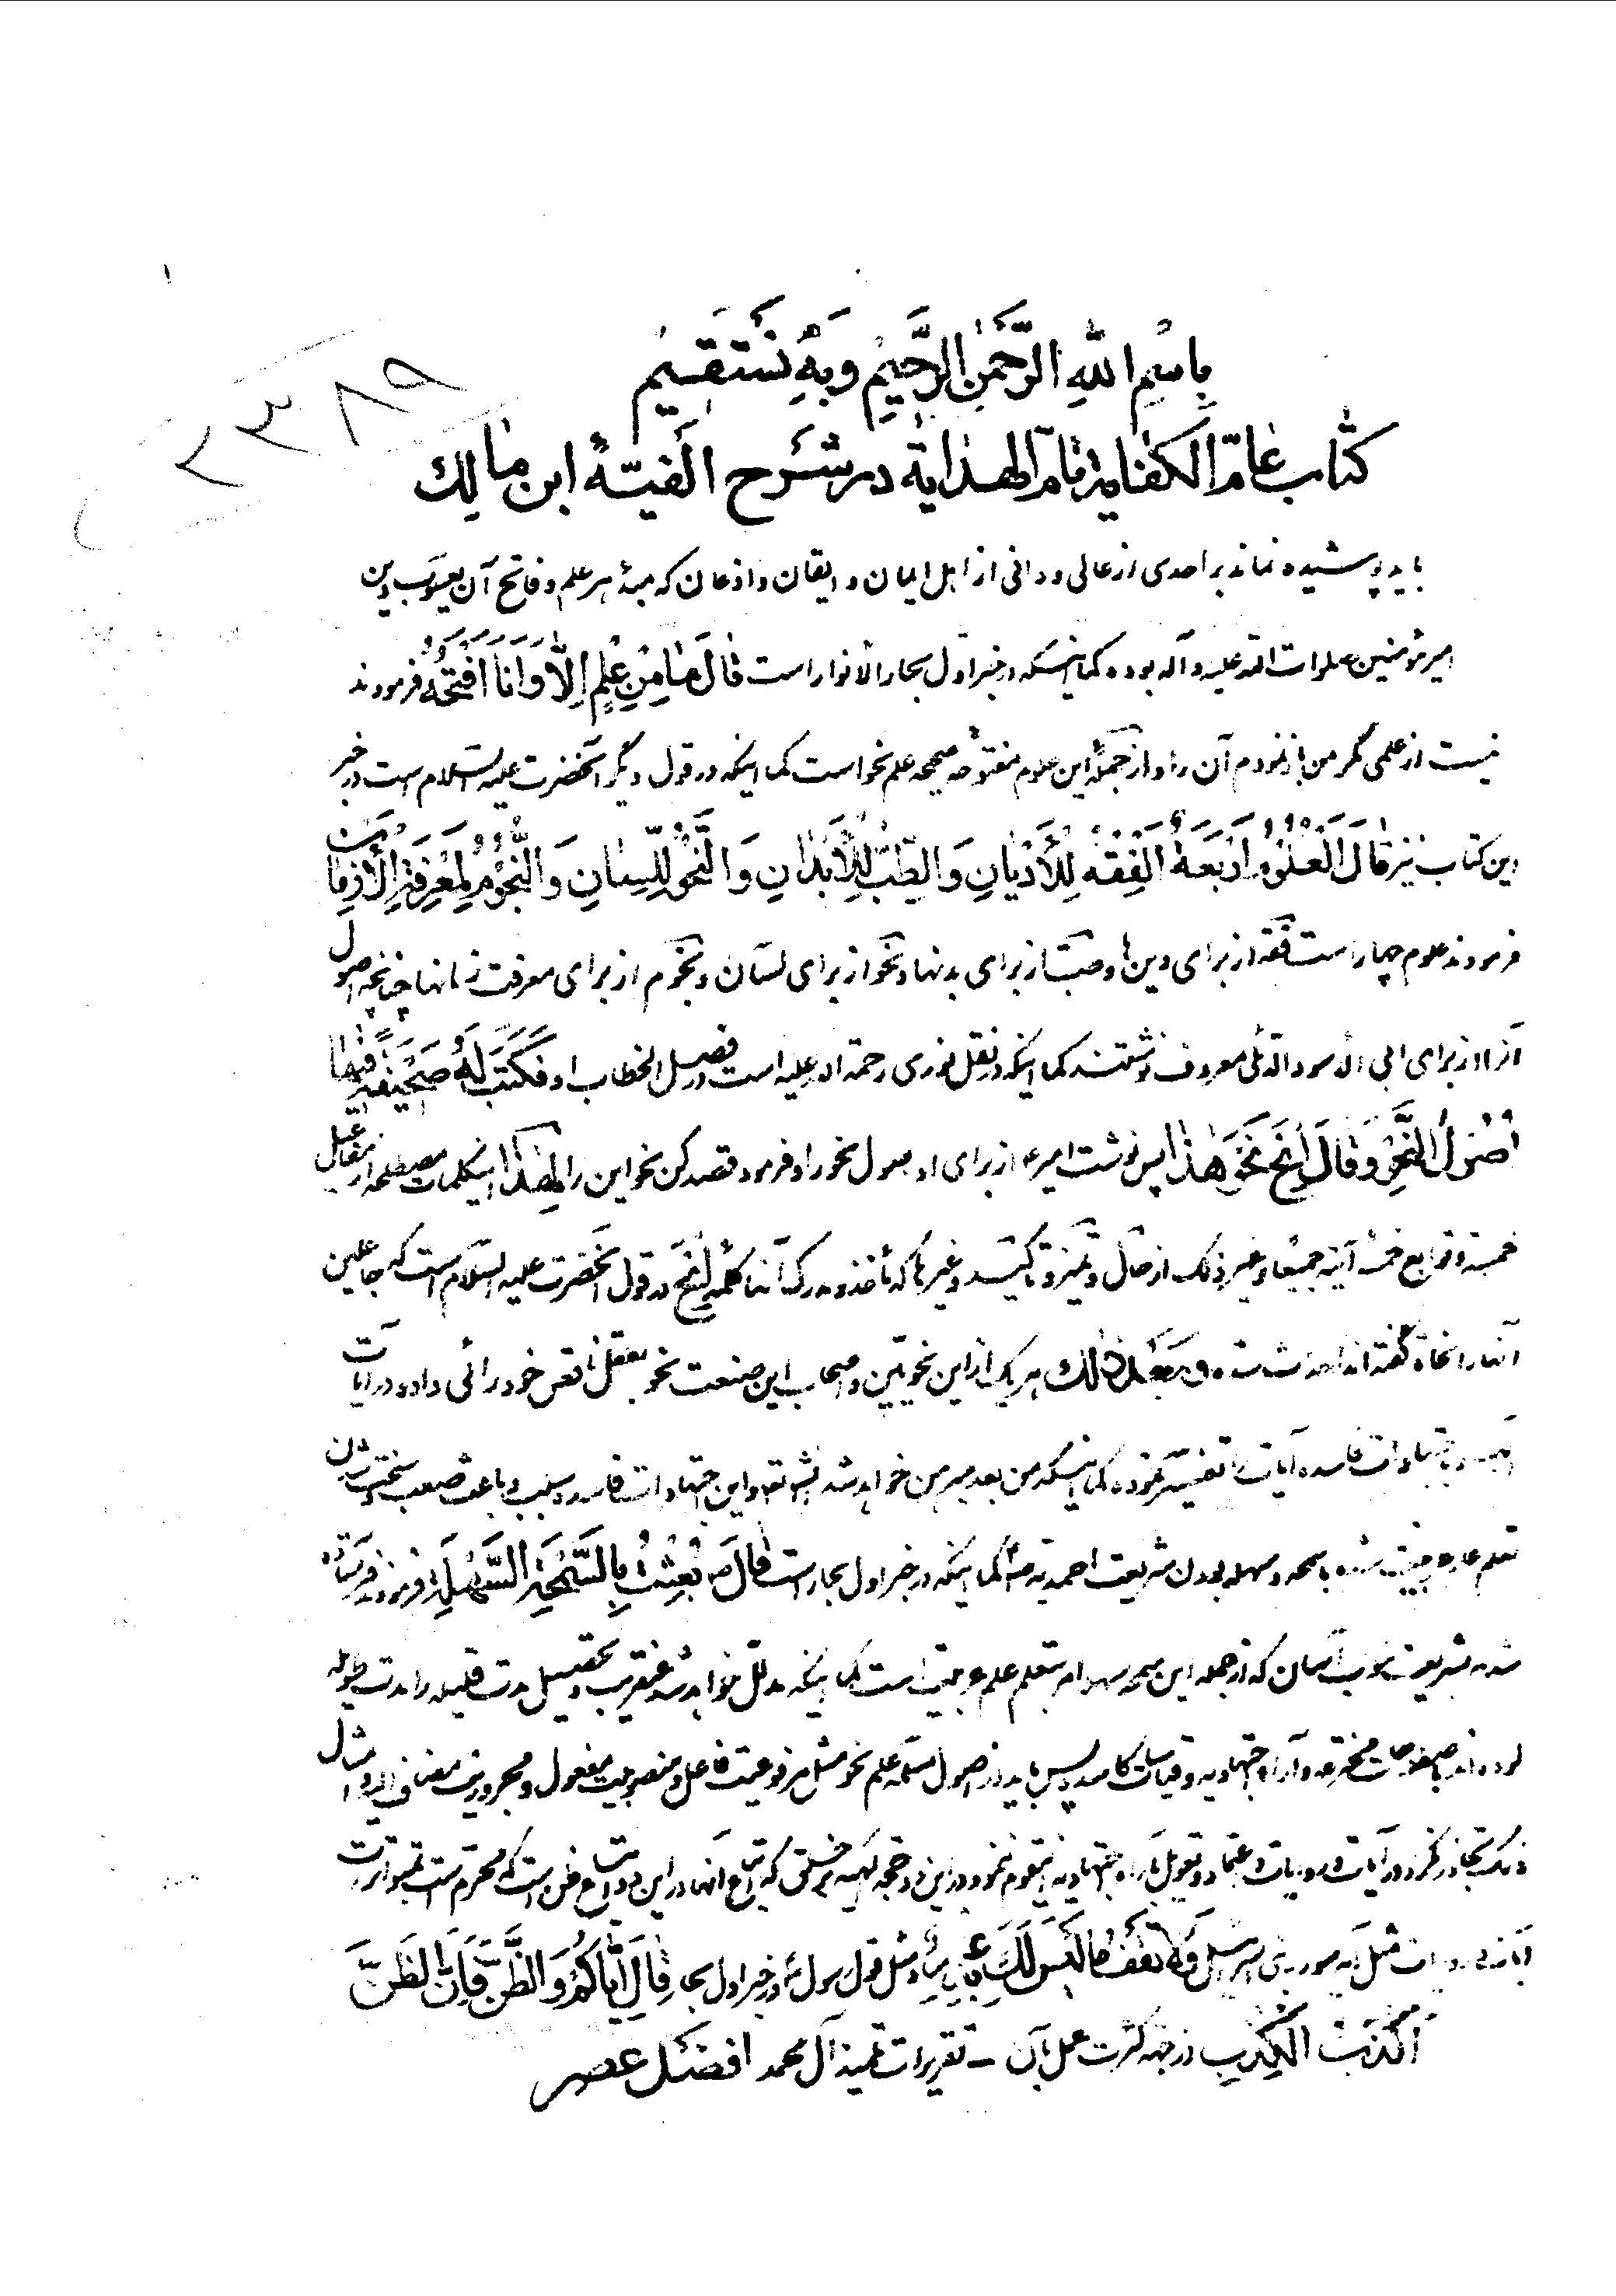 ۱
۲۳۸۹
بِاسْمِ اللهِ الرَّحْمٰنِ الرَّحِیْمِ وَبِهِ نَسْتَقِیْمُ
کتاب عامّ الکفایة تامّ الهدایة در شرح الفیّة ابن مالک
باید پوشیده نماند بر احدی از عالی و دانی از اهل ایمان و ایقان و اذعان که مبدء هر علم و فاتح آن یعسوب دین
امیر مؤمنین صلوات الله علیه و آله بوده کما اینکه در خبر اول بحار الأنوار است قالَ مامِنْ عِلْمٍ اِلّا وَاَنَا اَفْتَحُهُ فرمودند
نیست از علمی مگر من باز نمودم آن را و از جمله این علوم مفتوحه صحیحه علم نحو است کما اینکه در قول دیگر آنحضرت علیه السلام است در خبر
این کتاب نیز قالَ الْعُلُوْمُ اَرْبَعَةٌ اَلْفِقْهُ لِلْأَدْیانِ وَالطِّبُّ لِلْأَبْدانِ وَالنَّحْوُ لِلِّسانِ وَالنُّجُوْمُ لِمَعْرِفَةِ الْأَزْمِانِ
فرمودند علوم چهار است فقه از برای دین‌ها و طبّ از برای بدنها و نحو از برای لسان و نجوم از برای معرفت زمانها چنانچه اصول
آنرا از برای ابی الأسود الدئلی معروف نوشتند کما اینکه در نقل نوری رحمة الله علیه است در فصل الخطاب او فَکَتَبَ لَهُ صَحِیْفَةً فِیْها
اُصُوْلُ النَّحْوِ وَقالَ اِنْحَ نَحْوَ هٰذا پس نوشت امیر ع از برای او اصول نحو را و فرمود قصد کن نحو این را لِهٰذا اینکلمات مصطلحه از مفاعیل
خمسة و توابع خمسة آتیه جمیعا و غیر ذلک از حال و تمیز و تاکید و غیرها که مأخذ و مدرک آنها کلمه اِنْحَ در قول آنحضرت علیه السّلام است که جاعلین
آنها را نحاة گفته اند احداث شده و بَعْدَ ذالک هر یک از این نحویّین و اصحاب این صنعت نحو بعقل ناقص خود رائی داده و در آیات
اجتهادات فاسده آیات را تفسیر نموده کما اینکه من بعد مبرهن خواهد شد و این اجتهادات فاسده سبب و باعث صعب و سخت شدن
تعلم علم عربیت شده با سمحه و سهله بودن شریعت احمدیه ص کما اینکه در خبر اول بحار است قالَ ص بُعِثْتُ بِالسَّمْحَةِ السَّهْلَةِ فرمودند فرستاده
شدم بشریعت خوب آسان که از جمله این سمحه سهله امر تعلم علم عربیت است کما اینکه مدلل خواهد شد عنقریب و تحصیل مدت قلیله را مدت طویله
مخترعه و آراء اجتهادیه و قیاسات کاسده پس باید از اصول مسلّمه علم نحو مثل مرفوعیت فاعل و منصوبیت مفعول و مجروریت مضاف الیه و امثال
ذلک تجاوز نکرد و در آیات و روایات و اعتماد و تعویل بآراء اجتهادیه این قوم ننمود که اتباع آنها در این اتباع ظن است که محرّم است بمتواترات
آیات و روایات مثل آیه سوره بنی اسرائیل وَلا تَقْفُ مالَیْسَ لَکَ بِهِ عِلْمٌ و مثل قول رسول ص در خبر اول بحار قالَ اِیّاکُمْ وَالظَّنَّ فَاِنَّ الظَّنَّ
اَکْذَبُ الْکِذْبِ از جهة کثرت عمل بآن – تقریرات تلمیذ آل محمد افضل عصر